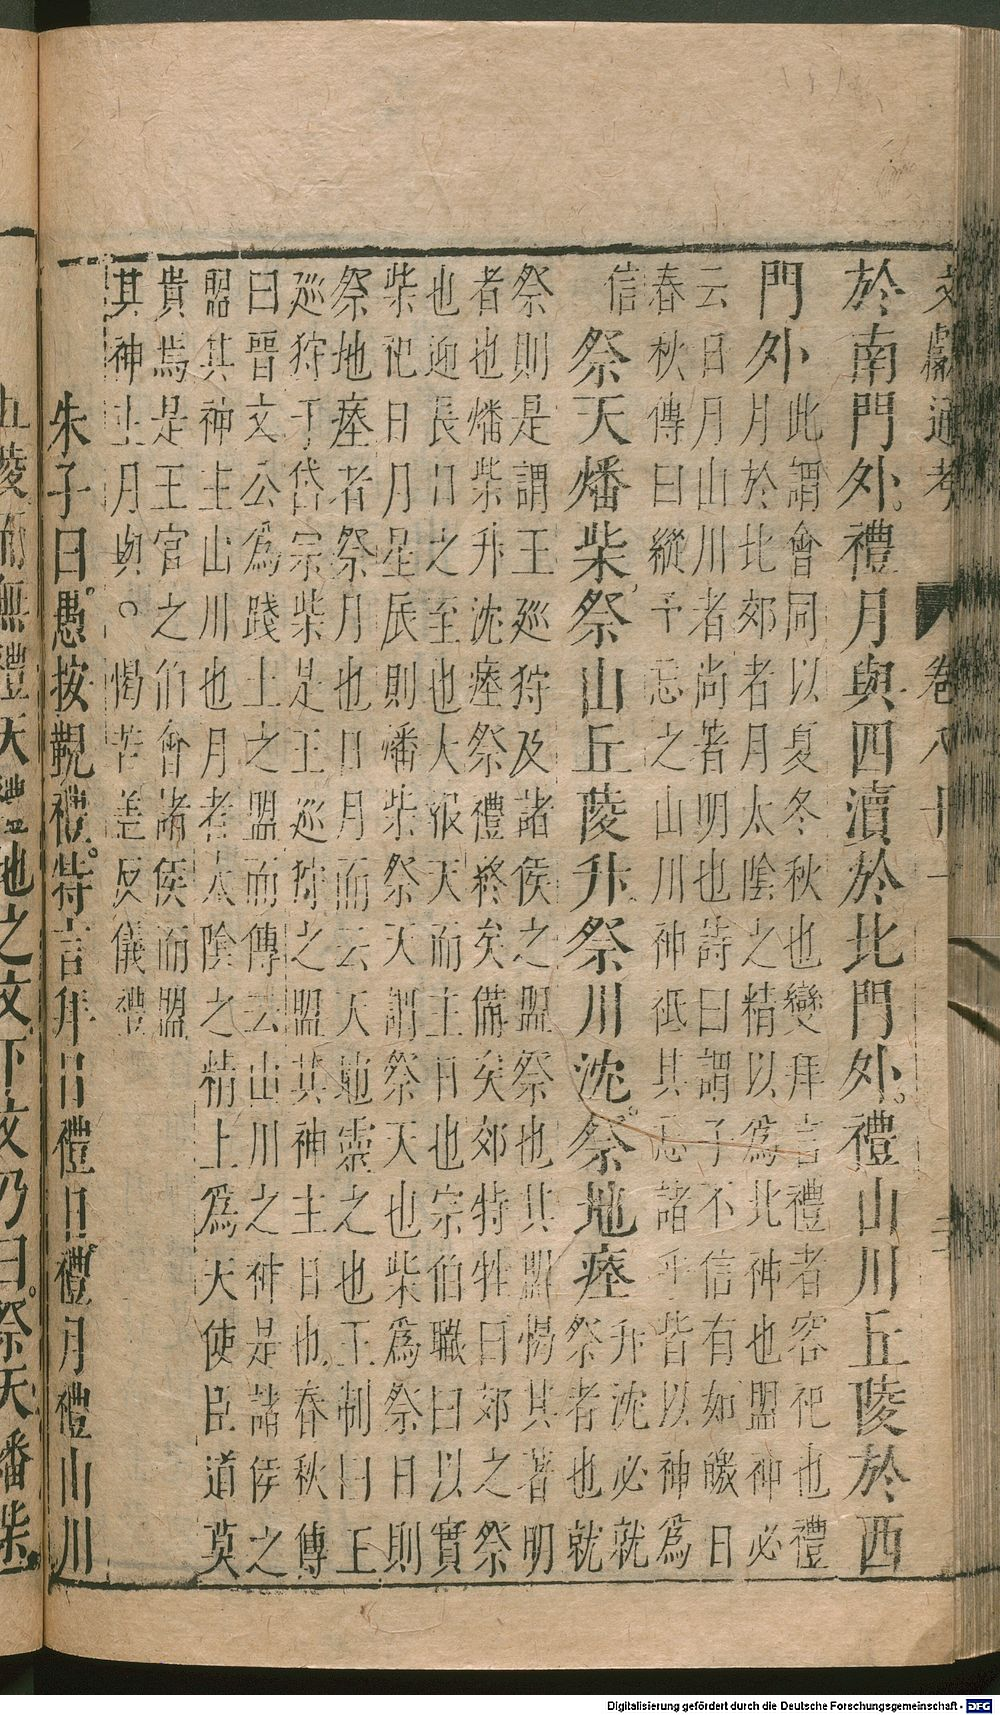 文獻通考 卷八十一 二
於南門外禮月與四瀆於北門外禮山川丘陵於西
門外
此謂會同以夏冬秋也變拜言禮者容祀也禮
月於北郊者月太陰之精以為北神也盟神必
云日月山川者尚著明也詩曰謂予不信有如皦日
春秋傳曰縱子忘之山川神祇其忘諸乎皆以神為
信
祭天燔柴祭山丘陵升祭川沈祭地瘞
升沈必就
祭者也就
祭則是謂王巡狩及諸侯之盟祭也其盟愒其著明
者也燔柴升沈瘞祭禮終矣備矣郊特牲曰郊之祭
也迎長日之至也大報天而主日也宗伯職曰以實
柴祀日月星辰則燔柴祭天謂祭天也柴為祭日則
祭地瘞者祭月也日月而云天地靈之也王制曰王
巡狩于岱宗柴是王巡狩之盟其神主日也春秋傳
曰晉文公為踐土之盟而傳云山川之神是諸侯之
盟其神主山川也月者太陰之精上為天使臣道莫
貴焉是王官之伯會諸侯而盟
其神主月與○愒苦盖反儀禮
朱子曰愚按覲禮特言拜日禮日禮月禮山川
丘陵而無禮天禮地之文下文乃曰祭天燔柴
Digitalisierung gefördert durch die Deutsche Forschungsgemeinschaft - DFG